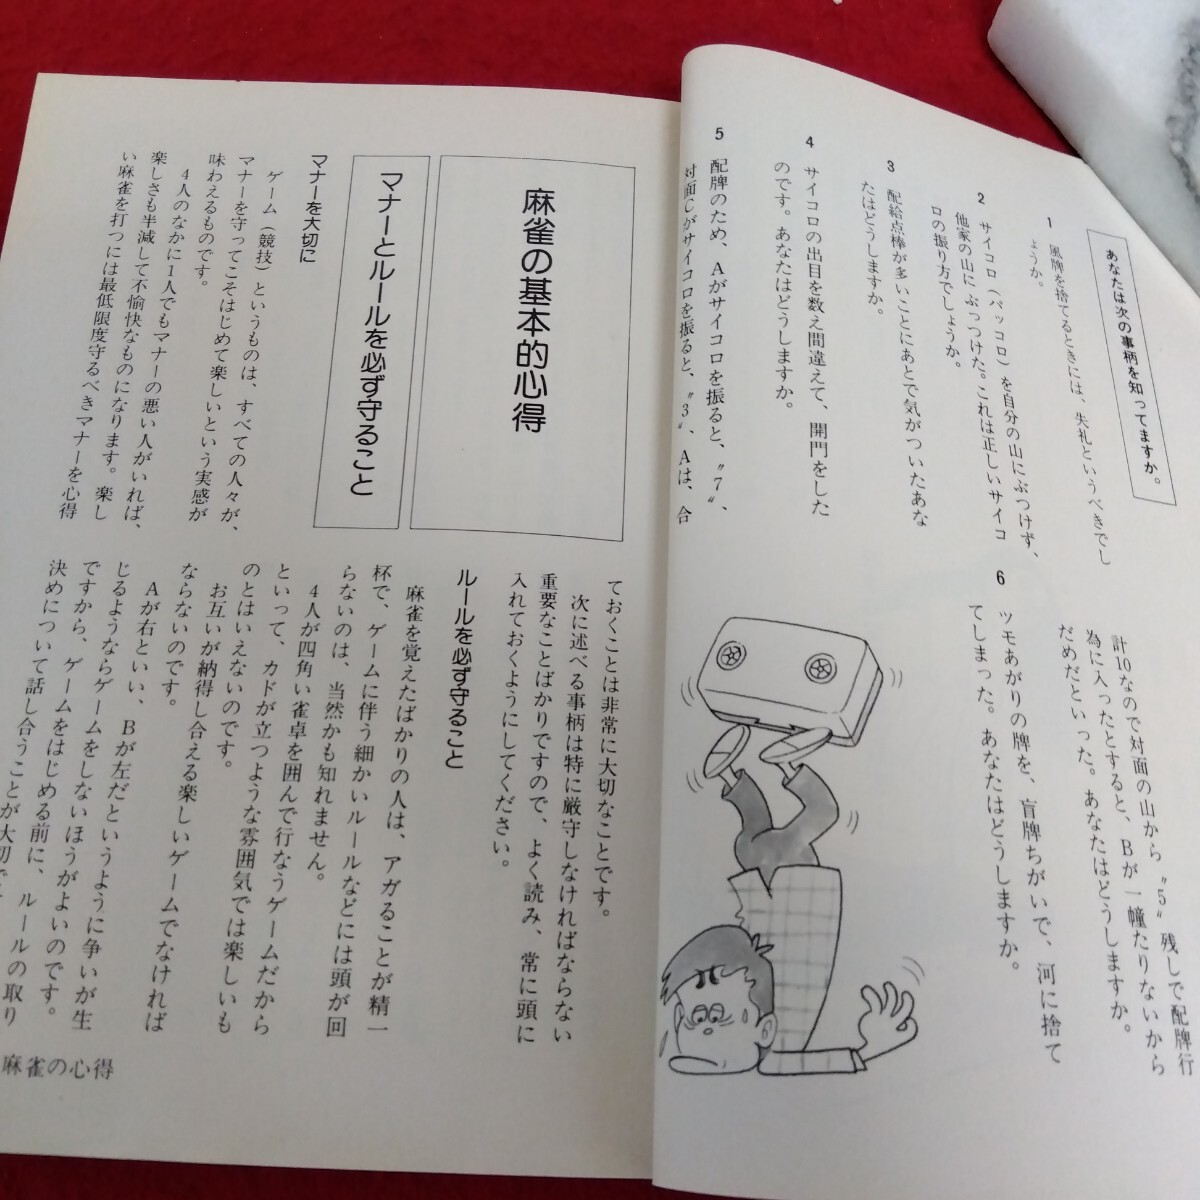 あなたは次の事柄を知ってますか。
1　風牌を捨てるときには、失礼というべきでし
ょうか。
2　サイコロ（パッコロ）を自分の山にぶつけず、
他家の山にぶっつけた。これは正しいサイコ
ロの振り方でしょうか。
3　配給点棒が多いことにあとで気がついたあな
たはどうしますか。
4　サイコロの出目を数え間違えて、開門をした
のです。あなたはどうしますか。
5　配牌のため、Aがサイコロを振ると、〝7〟、
対面Cがサイコロを振ると、〝3〟、Aは、合
計10なので対面の山から〝5〟残しで配牌行
為に入ったとすると、Bが一幢たりないから
だめだといった。あなたはどうしますか。
6　ツモあがりの牌を、盲牌ちがいで、河に捨て
てしまった。あなたはどうしますか。
麻雀の基本的心得
マナーとルールを必ず守ること
マナーを大切に
ゲーム（競技）というものは、すべての人々が、
マナーを守ってこそはじめて楽しいという実感が
味わえるものです。
4人のなかに1人でもマナーの悪い人がいれば、
楽しさも半減して不愉快なものになります。楽し
い麻雀を打つには最低限度守るべきマナーを心得
ておくことは非常に大切なことです。
次に述べる事柄は特に厳守しなければならない
重要なことばかりですので、よく読み、常に頭に
入れておくようにしてください。
ルールを必ず守ること
麻雀を覚えたばかりの人は、アガることが精一
杯で、ゲームに伴う細かいルールなどには頭が回
らないのは、当然かも知れません。
4人が四角い雀卓を囲んで行なうゲームだから
といって、カドが立つような雰囲気では楽しいも
のとはいえないのです。
お互いが納得し合える楽しいゲームでなければ
ならないのです。
Aが右といい、Bが左だというように争いが生
じるようならゲームをしないほうがよいのです。
ですから、ゲームをはじめる前に、ルールの取り
決めについて話し合うことが大切で
麻雀の心得